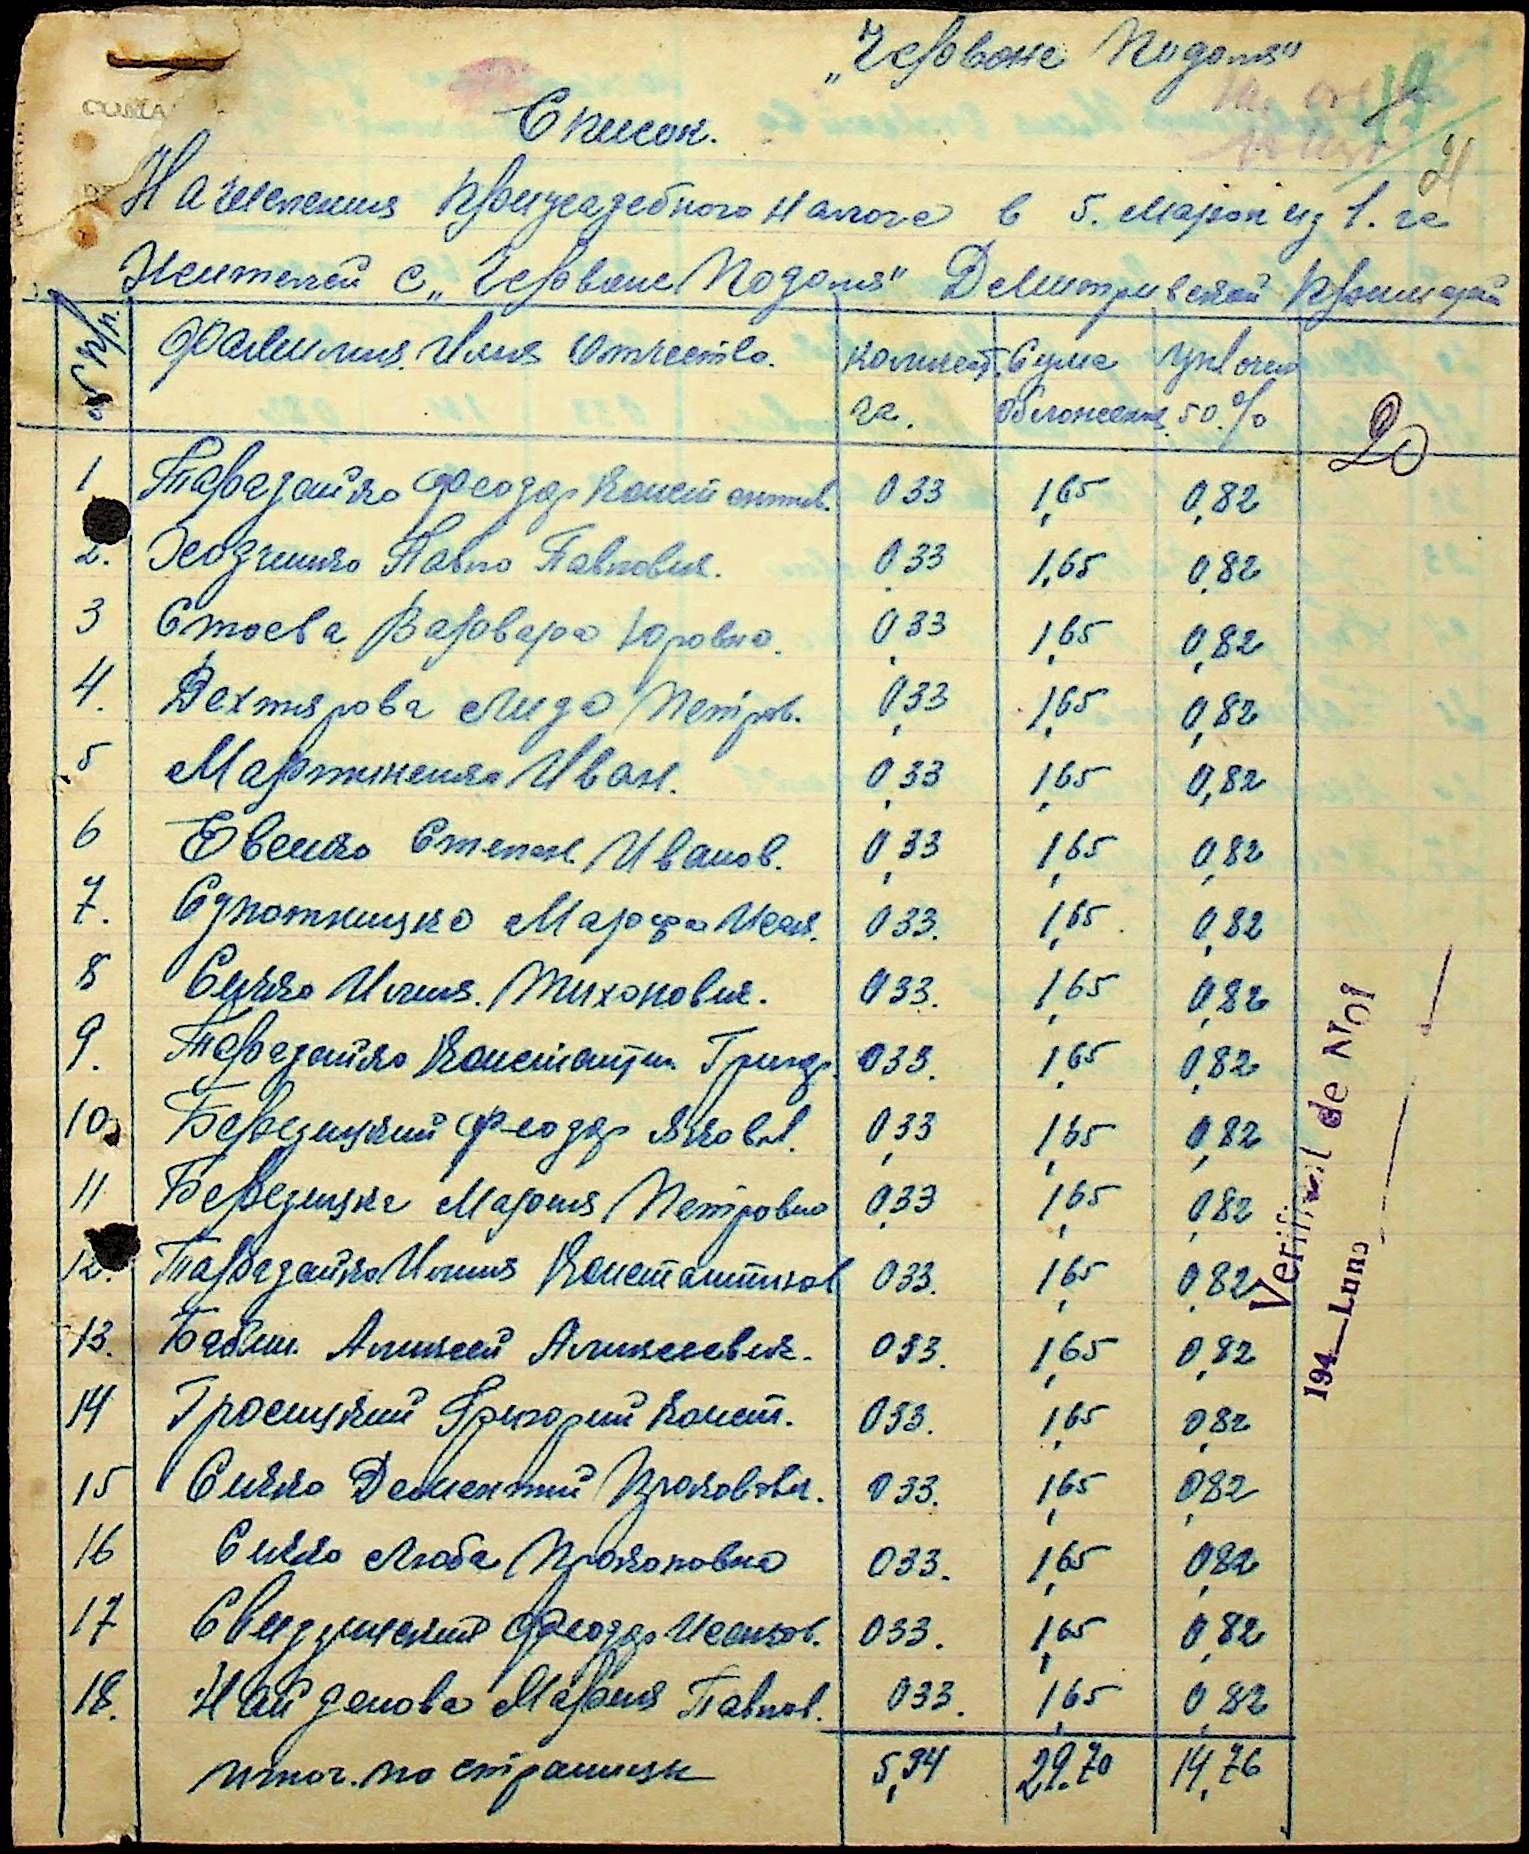 „Червоне Подоля"
19
21
Список.
Начисления Приусадебного Налога в 5. марок из 1. га
Жителей с „Червоне Подоля" Демитривской Примарии
№ п/п. Фамилия. Имя Отчество. количест. га. Сума обложения 50.%
20
1 Тарадайко Феодор Константинов. 0 33 1,65 0,82
2. Павло Павлович. 0 33 1,65 0,82
3 Стоева Варвара Юровна. 0,33 1,65 0,82
4. Дехтярова Лида Петров. 0,33 1,65 0,82
5 Мартиненко Иван. 0,33 1,65 0,82
6 Евенко Степан Иванов. 0,33 1,65 0,82
7. Марфа 0 33. 1,65 0,82
8 Сичко Илия. Тихонович. 0 33. 1,65 0,82
9. Тарадайко Константин Григор. 0 33. 1,65 0,82
10 Березицкий Феодор Яковл. 0,33 1,65 0,82
11 Березицка Мария Петровна 0,33 1,65 0,82
12. Тарадайко Илия Константинов 0 33. 1,65 0,82
13. Бабин. Аликсей Аликсеевич. 0 33. 1,65 0,82
14 Григорий Конст. 0 33. 1,65 0,82
15 Сичко Дементий 0 33. 1,65 0,82
16 Сичко Люба Прокоповна 0 33. 1,65 0,82
17 Феодор 0 33. 1,65 0,82
18. Найденова Мария Павлов. 0 33. 1,65 0,82
итог. по страници 5,94 29.70 14,76
Verificat de Noi
194—Luna